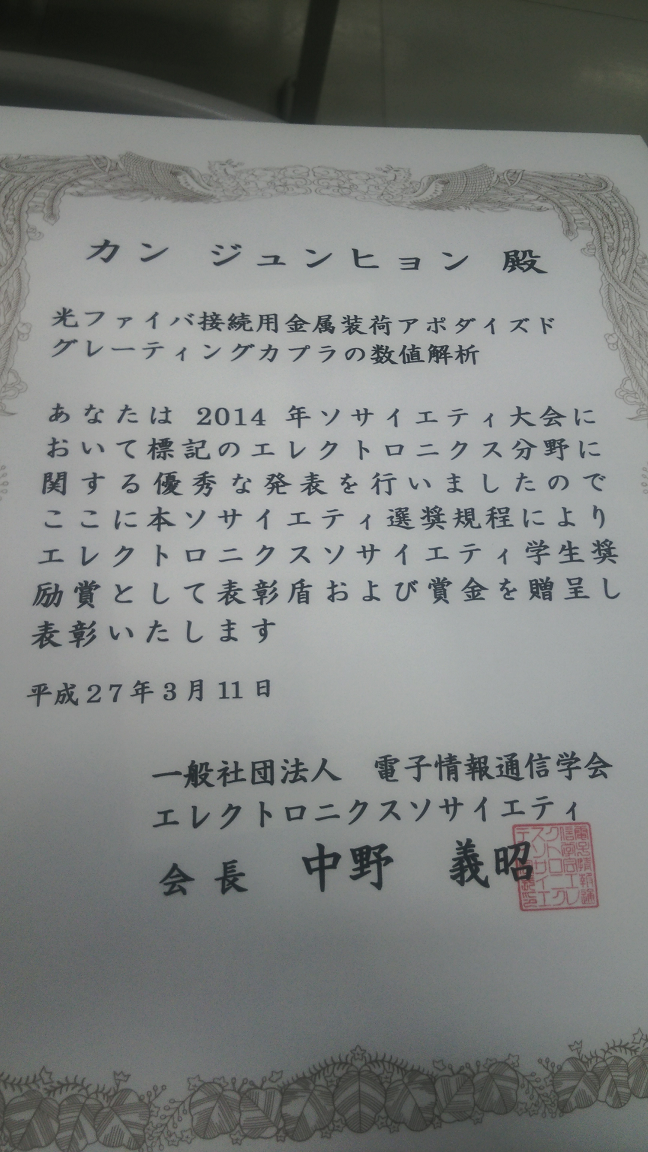 カン ジュンヒョン 殿
光ファイバ接続用金属装荷アポダイズド
グレーティングカプラの数値解析
あなたは 2014 年ソサイエティ大会に
おいて標記のエレクトロニクス分野に
関する優秀な発表を行いましたので
ここに本ソサイエティ選奨規程により
エレクトロニクスソサイエティ学生奨
励賞として表彰盾および賞金を贈呈し
表彰いたします
平成27年3月11日
一般社団法人 電子情報通信学会
エレクトロニクスソサイエティ
会長 中野 義昭